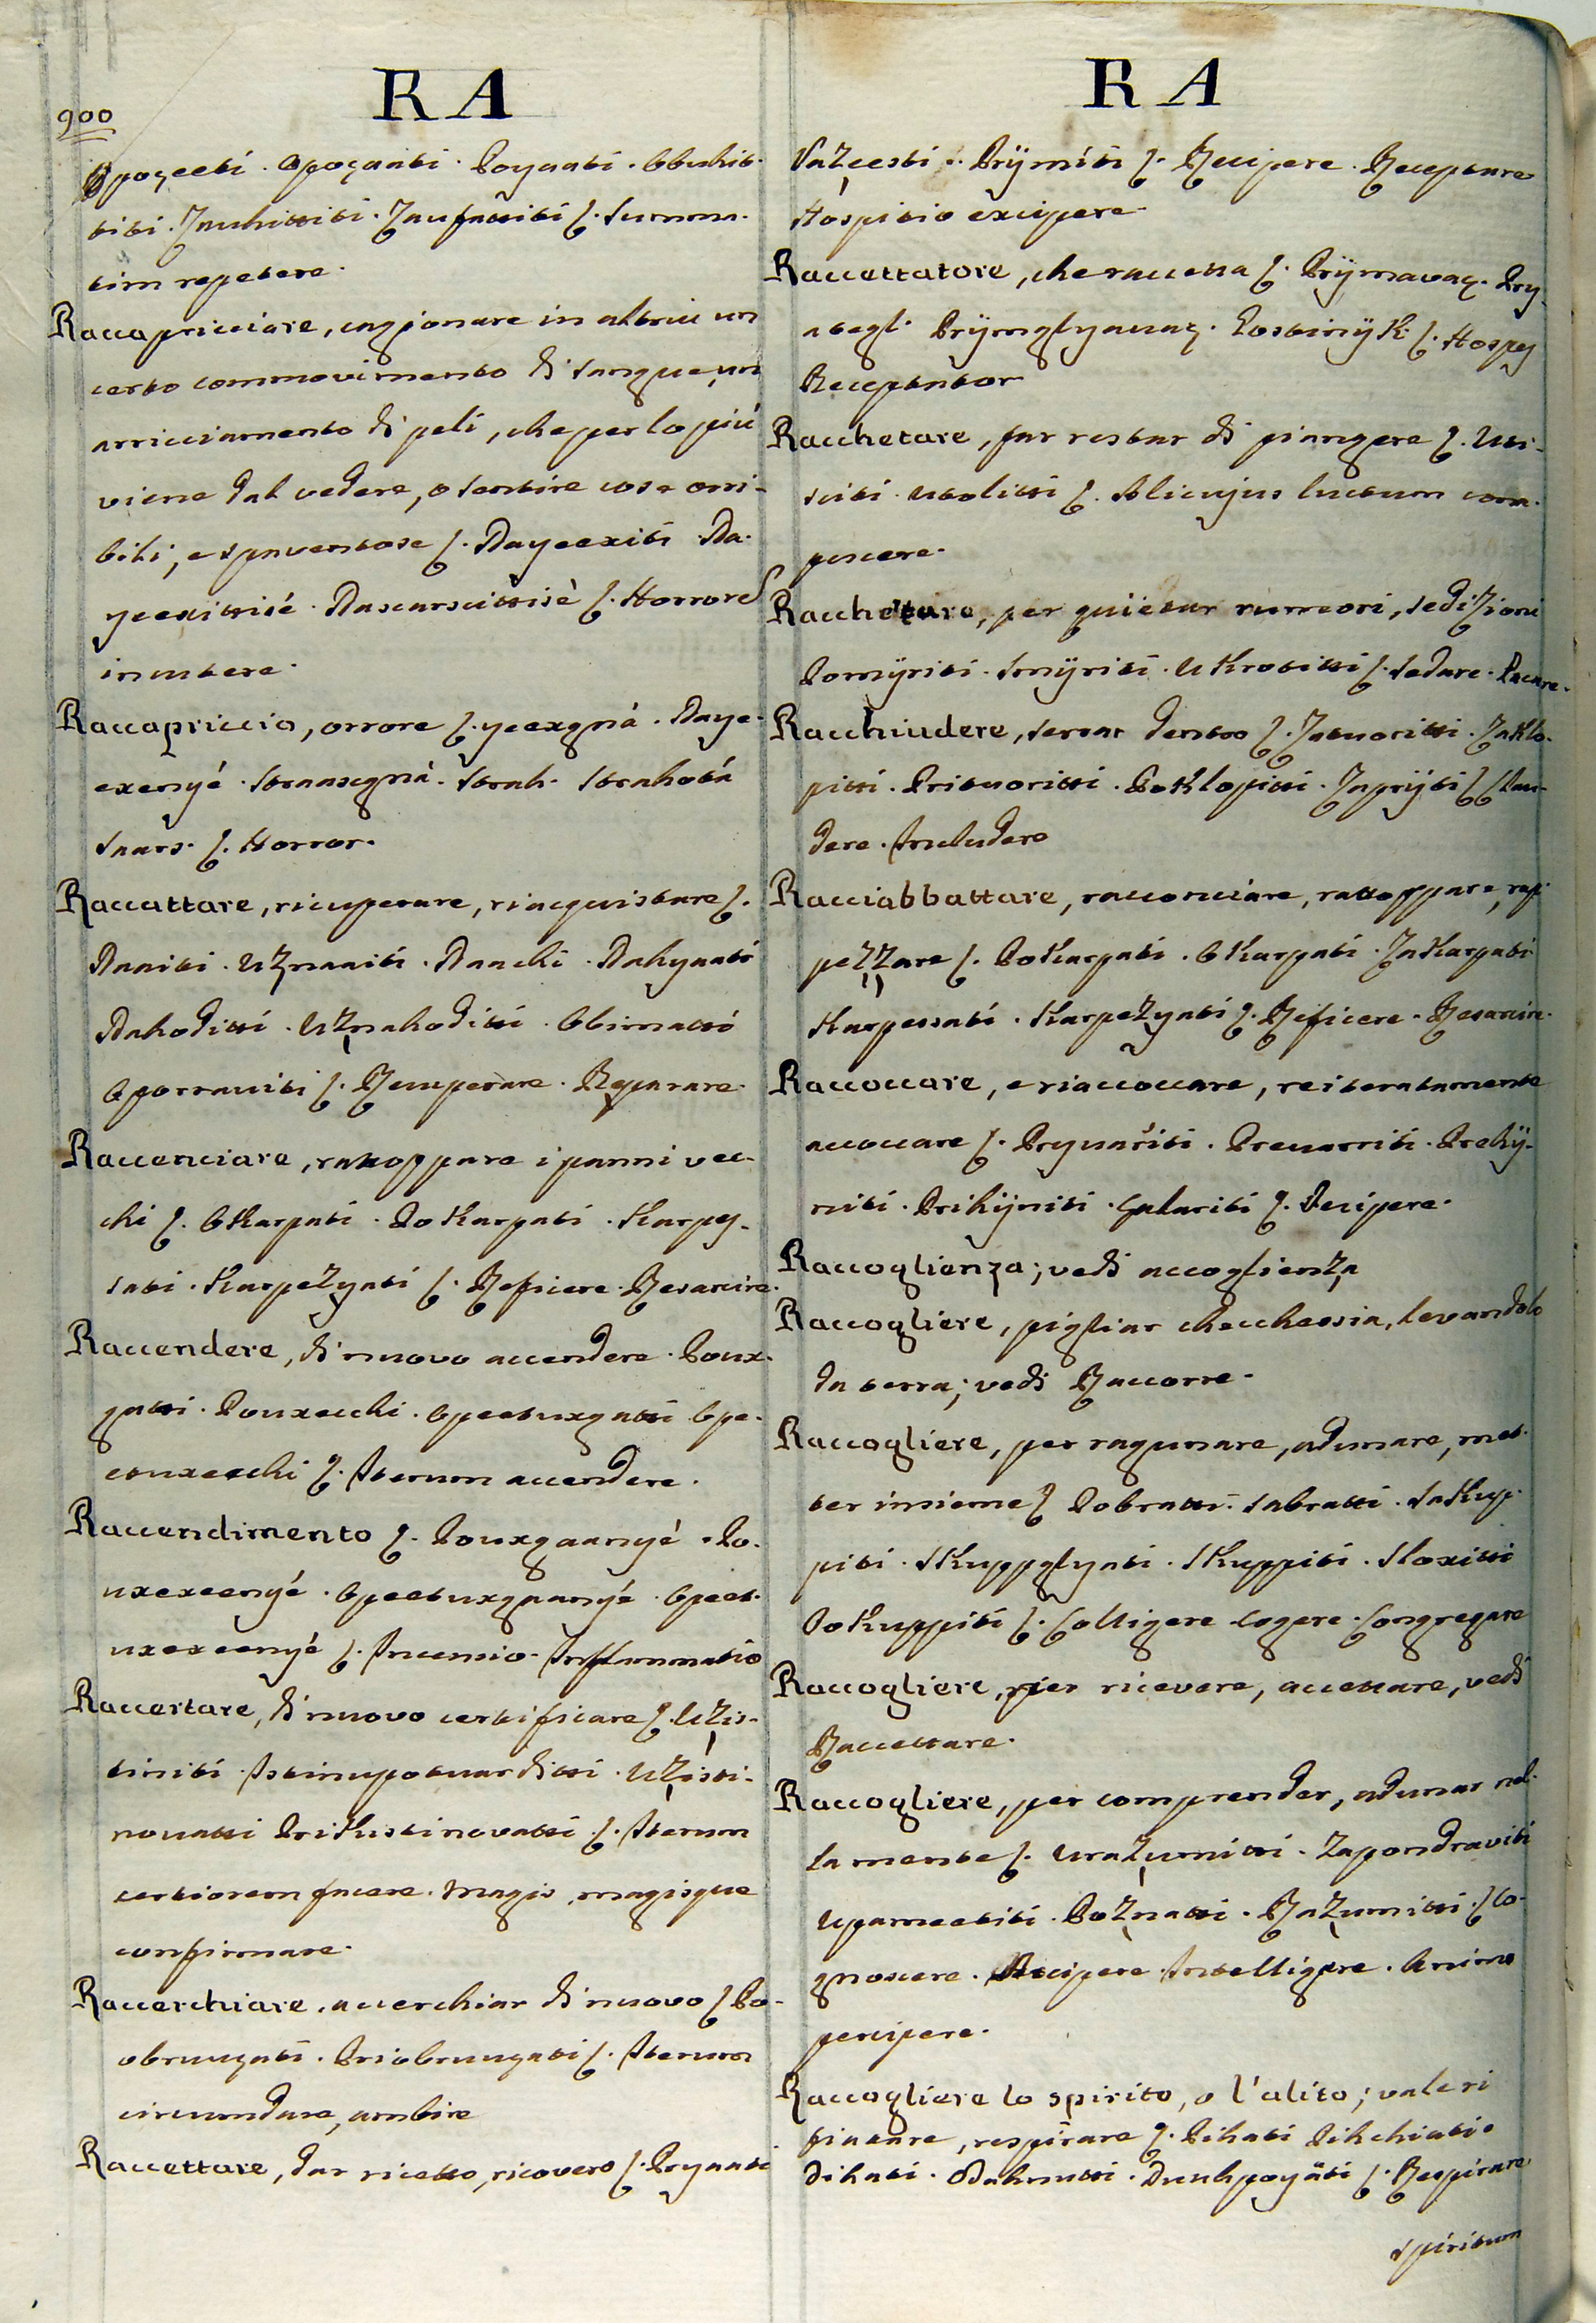 900
RA
Opoçeeti. Opoçaati. Poynati. Obuhit-
titi. Zauhittiti. Zaufattiti ſ. Summa-
tim repetere.
Raccapricciare, cagionare in altrui un
certo commovimento di sangue, un
arricciamento di peli, che per lo più
viene dal vedere, o sentire cose orri-
bili, e spaventose ſ. Nayeexiti. Na-
yeexittisé. Nascarscittisè ſ. Horrores
incutere.
Raccapriccio, orrore ſ. yeexgnà. Naye-
exenyé. Straasegnà. Strah. Strahotà
Snars. ſ. Horror.
Raccattare, ricuperare, riacquistare ſ.
Naaiti. Uznaaiti. Naachi. Nahynati
Nahoditti. Uznahoditti. Obimatti
Oporraviti ſ. Recuperare. Reparare.
Raccenciare, rattoppare i panni vec-
chi ſ. Okarpati. Pokarpati. Karpes-
sati. Karpežyati ſ. Reficere. Resarcire.
Raccendere, di nuovo accendere. Poux-
gatti. Pouxecchi. Opeetuxgatti Ope-
etuxecchi ſ. Iterum accendere.
Raccendimento ſ. Pouxgaanyé. Po-
uxexeenyé. Opeetuxgaanyé. Opeet-
uxexeenyé ſ. Incensio. Inflammatio
Raccertare, di nuovo certificare ſ. Užis-
tiniti. Istinupotuarditti. Užisti-
nouatti Prikustinovatti. ſ. Iterum
certiorem facere. Magis, magisque
confirmare.
Raccerchiare, accerchiar di nuovo ſ. Po-
obruuçati. Priobruuçati ſ. Iterum
circumdare, ambire
Raccettare, dar ricetto, ricovero ſ. Pryaati
RA
Vazeesti. Prÿmiti ſ. Recipere. Receptare
Hospitio excipere.
Raccettatore, che raccetta ſ. Prÿmavaç. Pry-
ategl. Prÿmglyauaç. Gostinÿk. ſ. Hospes
Receptator
Racchetare, far restar di piangere ſ. Uti-
sciti. Utolitti ſ. Alicujus luctum com-
pescere.
Racchettare, per quietar rumori, sedizioni
Pomÿriti. Smÿriti. Ukrotitti ſ. Sedare. Pacare.
Racchiudere, serrar dentro ſ. Zatuoritti. Zaklo-
pitti. Prituoritti. Poklopitti. Zaprijti ſ. Clau-
dere. Includere
Racciabbattare, racconciare, rattoppare, rap-
pezzare ſ. Pokarpati. Okarpati. Zakarpati
Karpessati. Karpežyati ſ. Reficere. Resarcire.
Raccoccare, e riaccoccare, reiteratamente
accoccare ſ. Pryuariti. Preuarriti. Prehÿ-
niti. Prihÿniti. Galariti ſ. Decipere.
Raccoglienza; vedi accoglienza
Raccogliere, pigliar checchessia, levandolo
da terra; vedi Raccorre.
Raccogliere, per ragunare, adunare, met-
ter insieme ſ. Pobratti. Sabratti. Sakup-
piti. Skuppglyati. Skuppiti. Sloxitti
Pokuppiti ſ. Colligere. Cogere. Congregare
Raccogliere, per ricevere, accettare, vedi
Raccettare.
Raccogliere, per comprender, adunar nel-
la mente ſ. Urazumitti. Zapondraviti
Upameetiti. Poznatti. Razumitti. ſ. Co-
gnoscere. Accipere. Intelligere. Animo
percipere.
Raccogliere lo spirito, o l'alito; vale ri-
fiatare, respirare ſ. Pihati Pihchiati.
Dihati. Odahnutti. Duuhpoyäti ſ. Respirare
Spiritum